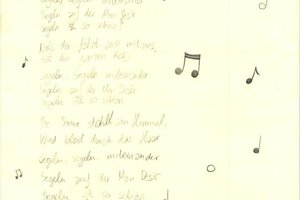 Segeln, segeln miteinander
Segeln auf der Mon Desir
Segeln ist so schön!
der fährt mit uns,
den ganzen
Segeln, segeln miteinander
Segeln auf der Mon Desir
Segeln ist so schön
Sonne strahlt am Himmel,
Wind bläst durch das Haar
Segeln, segeln miteinander
Segeln auf der Mon Desir
Segeln ist so schön